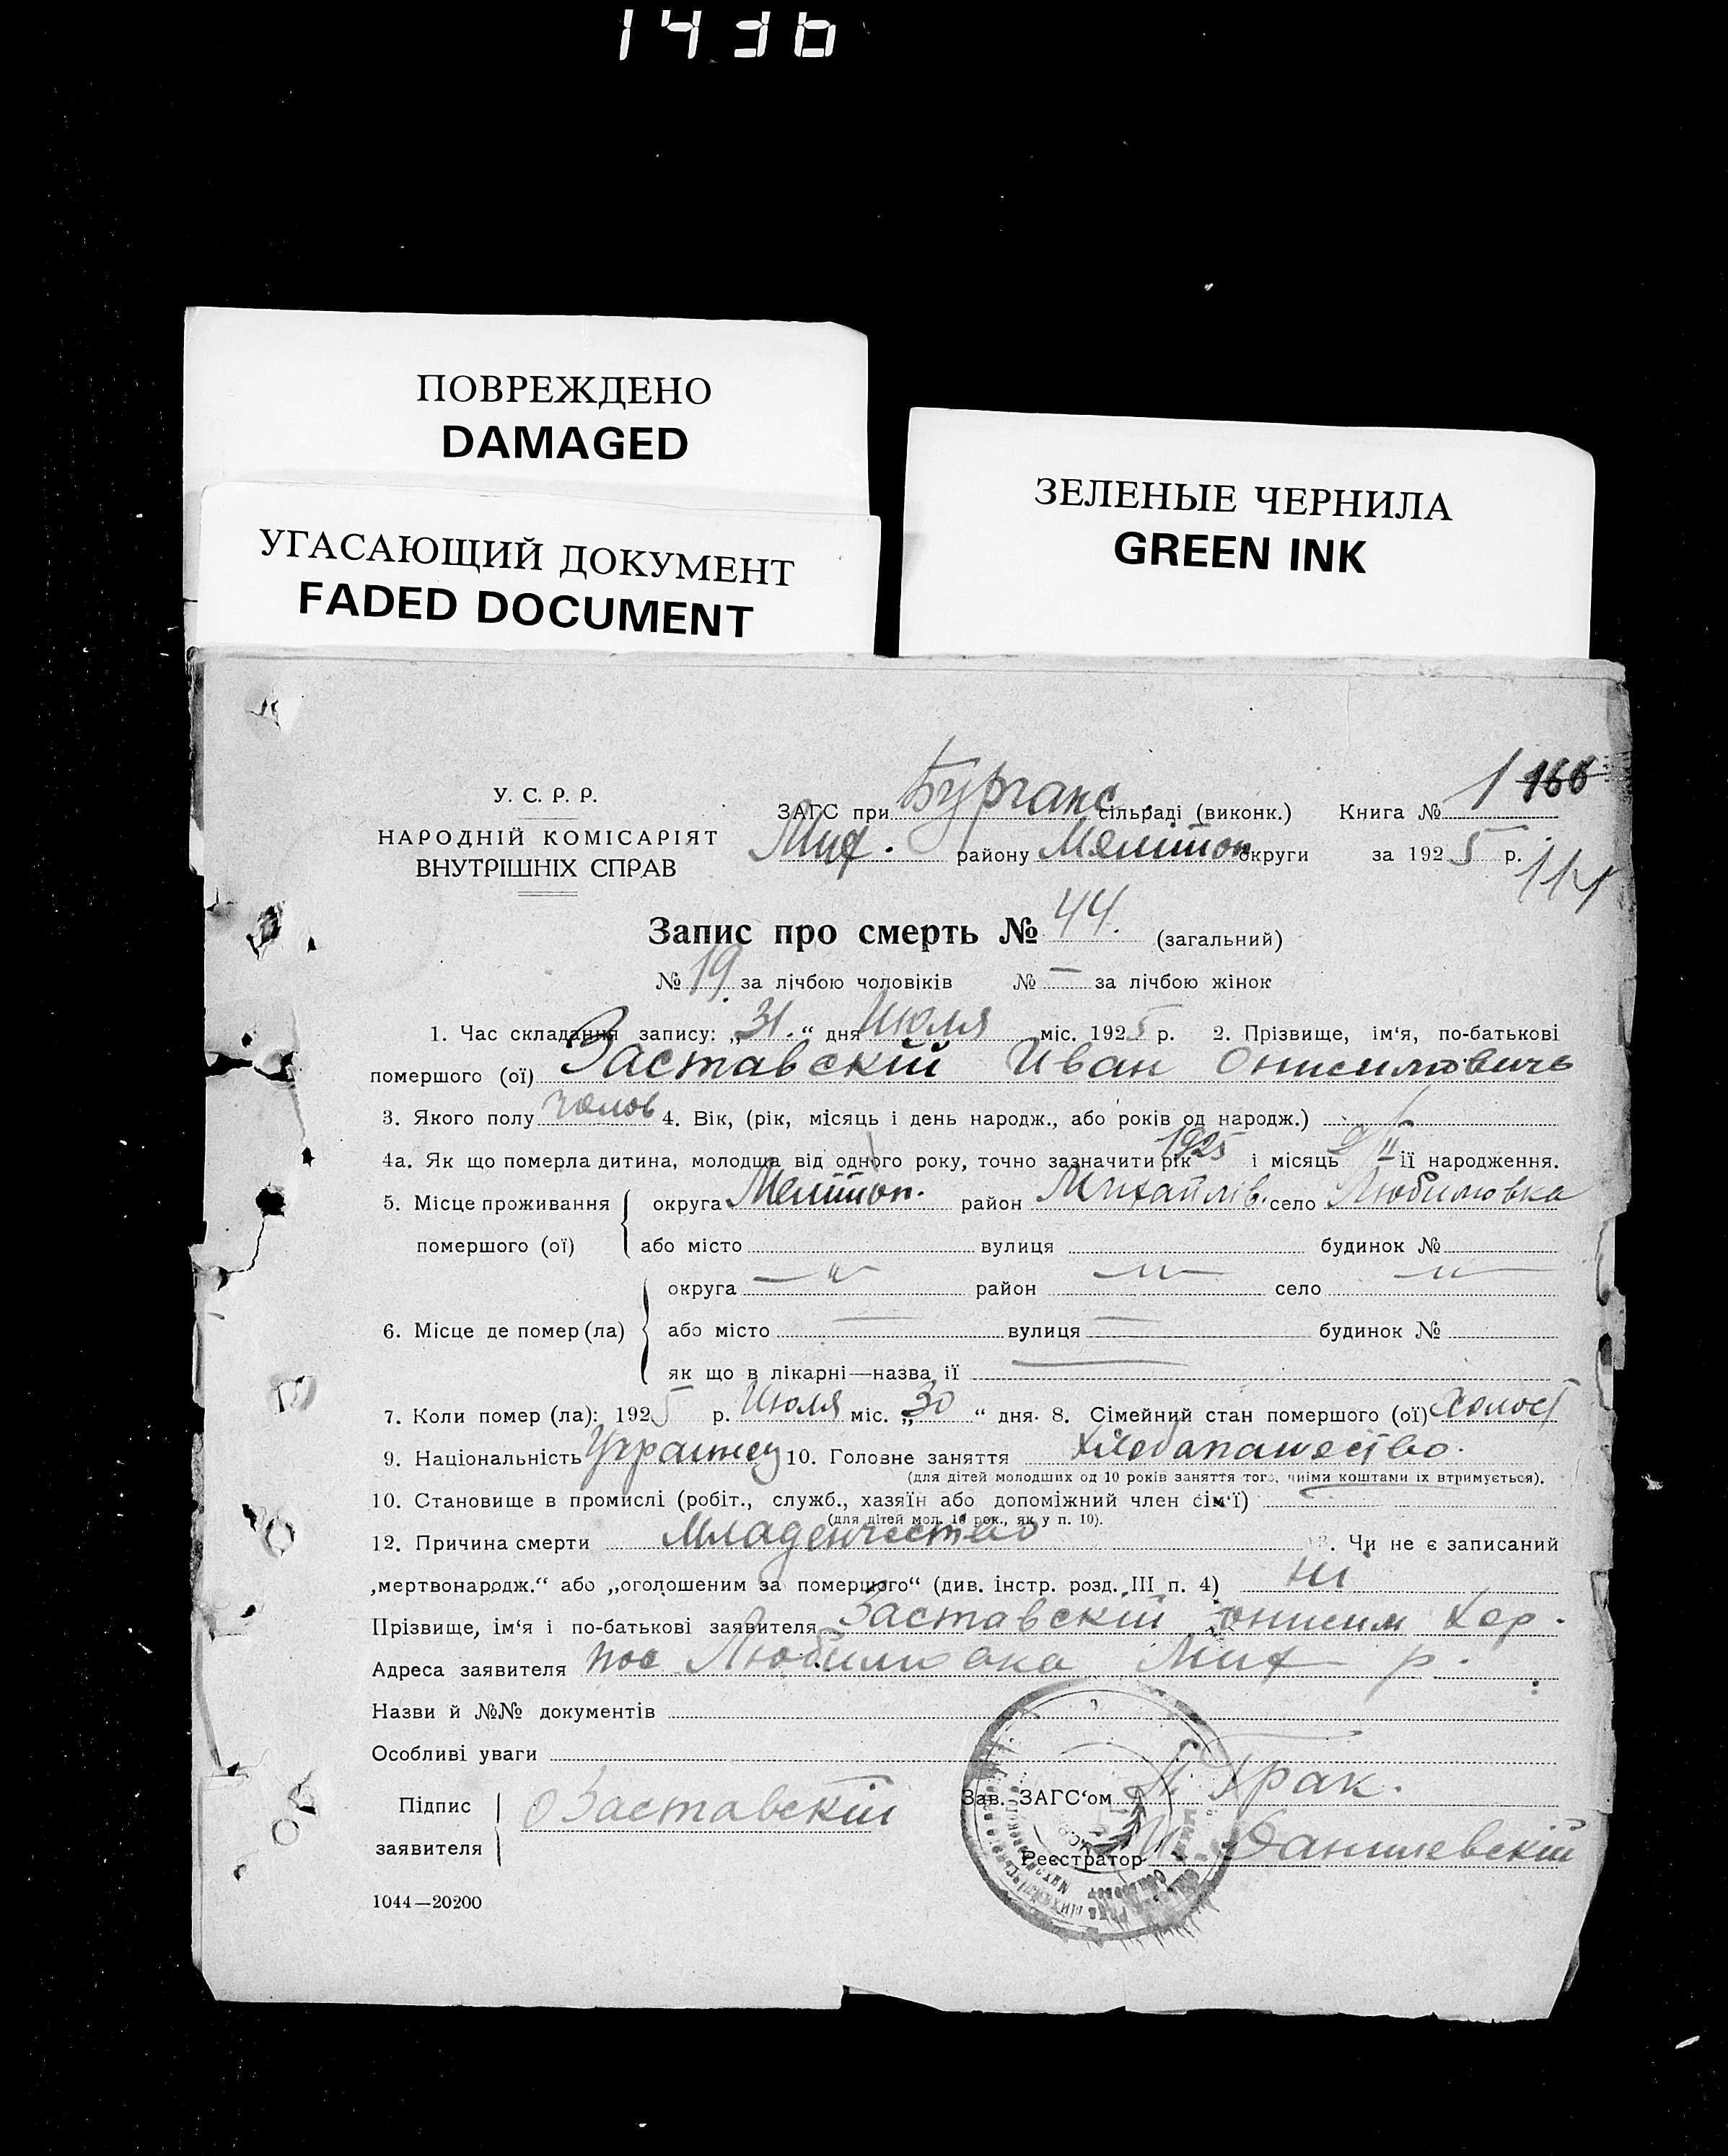 1436
ПОВРЕЖДЕНО
DAMAGED
УГАСАЮЩИЙ ДОКУМЕНТ
FADED DOCUMENT
ЗЕЛЕНЫЕ ЧЕРНИЛА
GREEN INK
У. С. Р. Р.
НАРОДНІЙ КОМІСАРІЯТ
ВНУТРІШНІХ СПРАВ
ЗАГС при Бурганс. сільраді (виконк.) Книга № 1 166
Мих. району Меліттоп округи за 1925 р.
Запис про смерть № 44. (загальний)
№ 19. за лічбою чоловіків № — за лічбою жінок
1. Час складання запису: „31.“ дня Июля міс. 1925 р. 2. Прізвище, ім‘я, по-батькові
помершого (ої) Заставскій Иван Онисимовичь
3. Якого полу чолов 4. Вік, (рік, місяць і день народж., або років од народж.)
4а. Як що померла дитина, молодша від одного року, точно зазначити рік 1925 і місяць її народження.
5. Місце проживання помершого (ої) округа Меліттоп. район Михайлів. село Любимовка
або місто вулиця будинок №
6. Місце де помер (ла) округа —"— район —"— село —"—
або місто — вулиця — будинок №
як що в лікарні—назва ії —
7. Коли помер (ла): 1925 р. Июля міс. „30“ дня. 8. Сімейний стан помершого (ої) Холост
9. Національність Украинец 10. Головне заняття Хлебопашество.
(для дітей молодших од 10 років заняття того, чиїми коштами їх втримується).
10. Становище в промислі (робіт., служб., хазяїн або допоміжний член сім‘ї)
(для дітей мол. 10 рок., як у п. 10).
12. Причина смерти Младенчество 13. Чи не є записаний
„мертвонародж.“ або „оголошеним за помершого“ (див. інстр. розд. III п. 4) ні
Прізвище, ім‘я і по-батькові заявителя Заставскій Онисим Хар.
Адреса заявителя пос Любимовка Мих р.
Назви й №№ документів
Особливі уваги
Підпис заявителя Заставскій
Зав. ЗАГС‘ом Грак.
Реєстратор Данилевскій
1044—20200